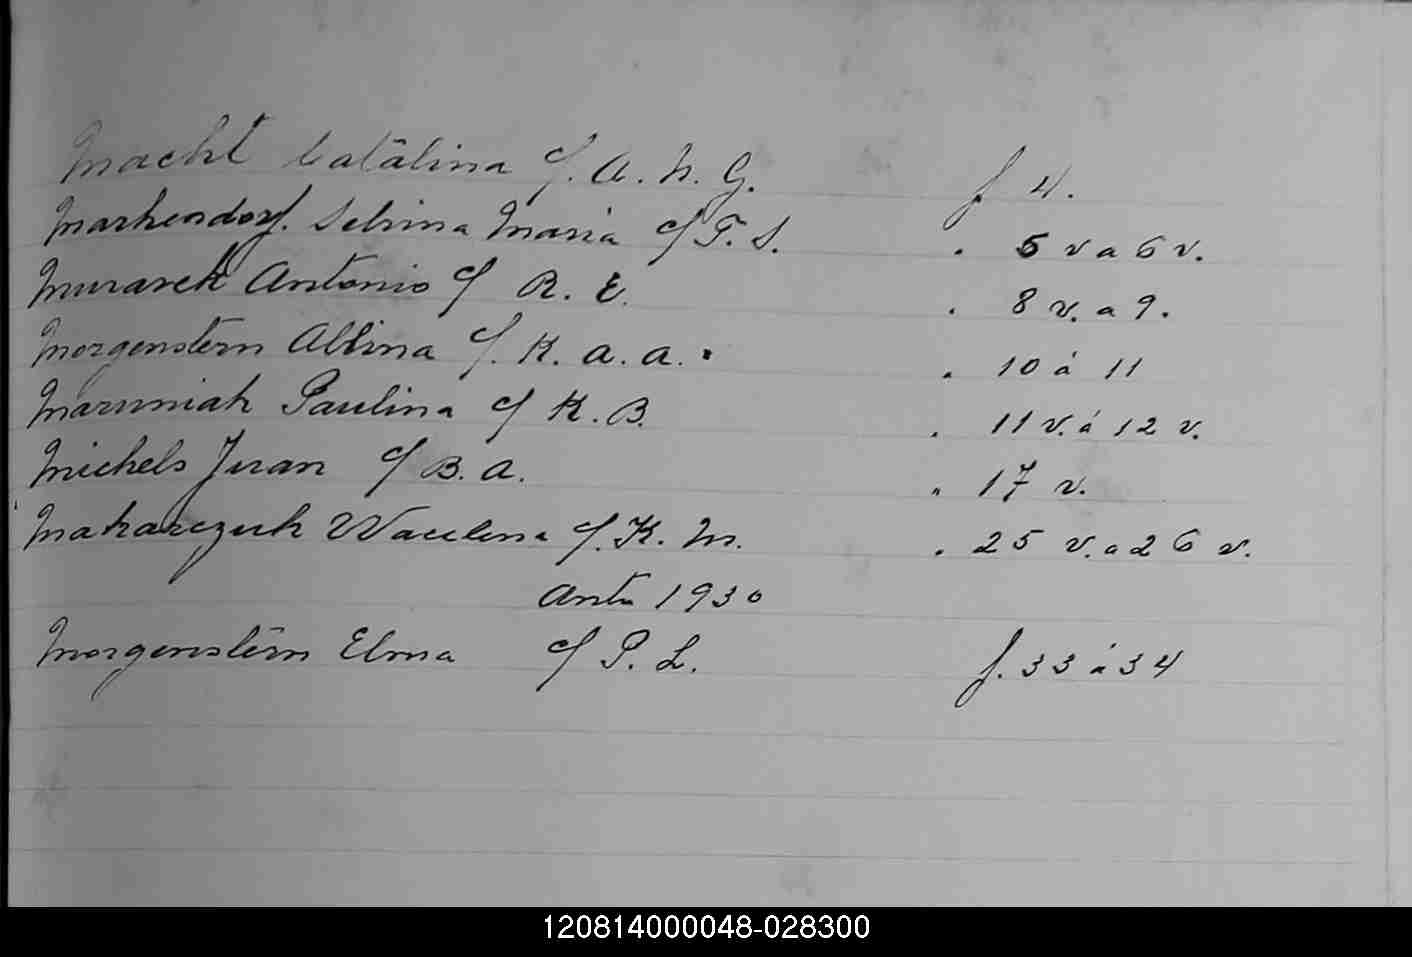 Macht Catalina c/. A. N. G. f 4.
Markendorf. Selvina Maria c/ F. S. . 5 v a 6 v.
Murarek Antonio c/ R. E. . 8 v. a 9.
Morgenstern Albina c/. K. A. A. . 10 á 11
Maruniak Paulina c/ K. B. . 11 v. á 12 v.
Michels Juan c/ B. A. " 17 v.
Makarczuk Waclena c/. K. M. . 25 v. a 26 v.
1930
Morgenstern Elma c/ P. L. f. 33 á 34
120814000048-028300